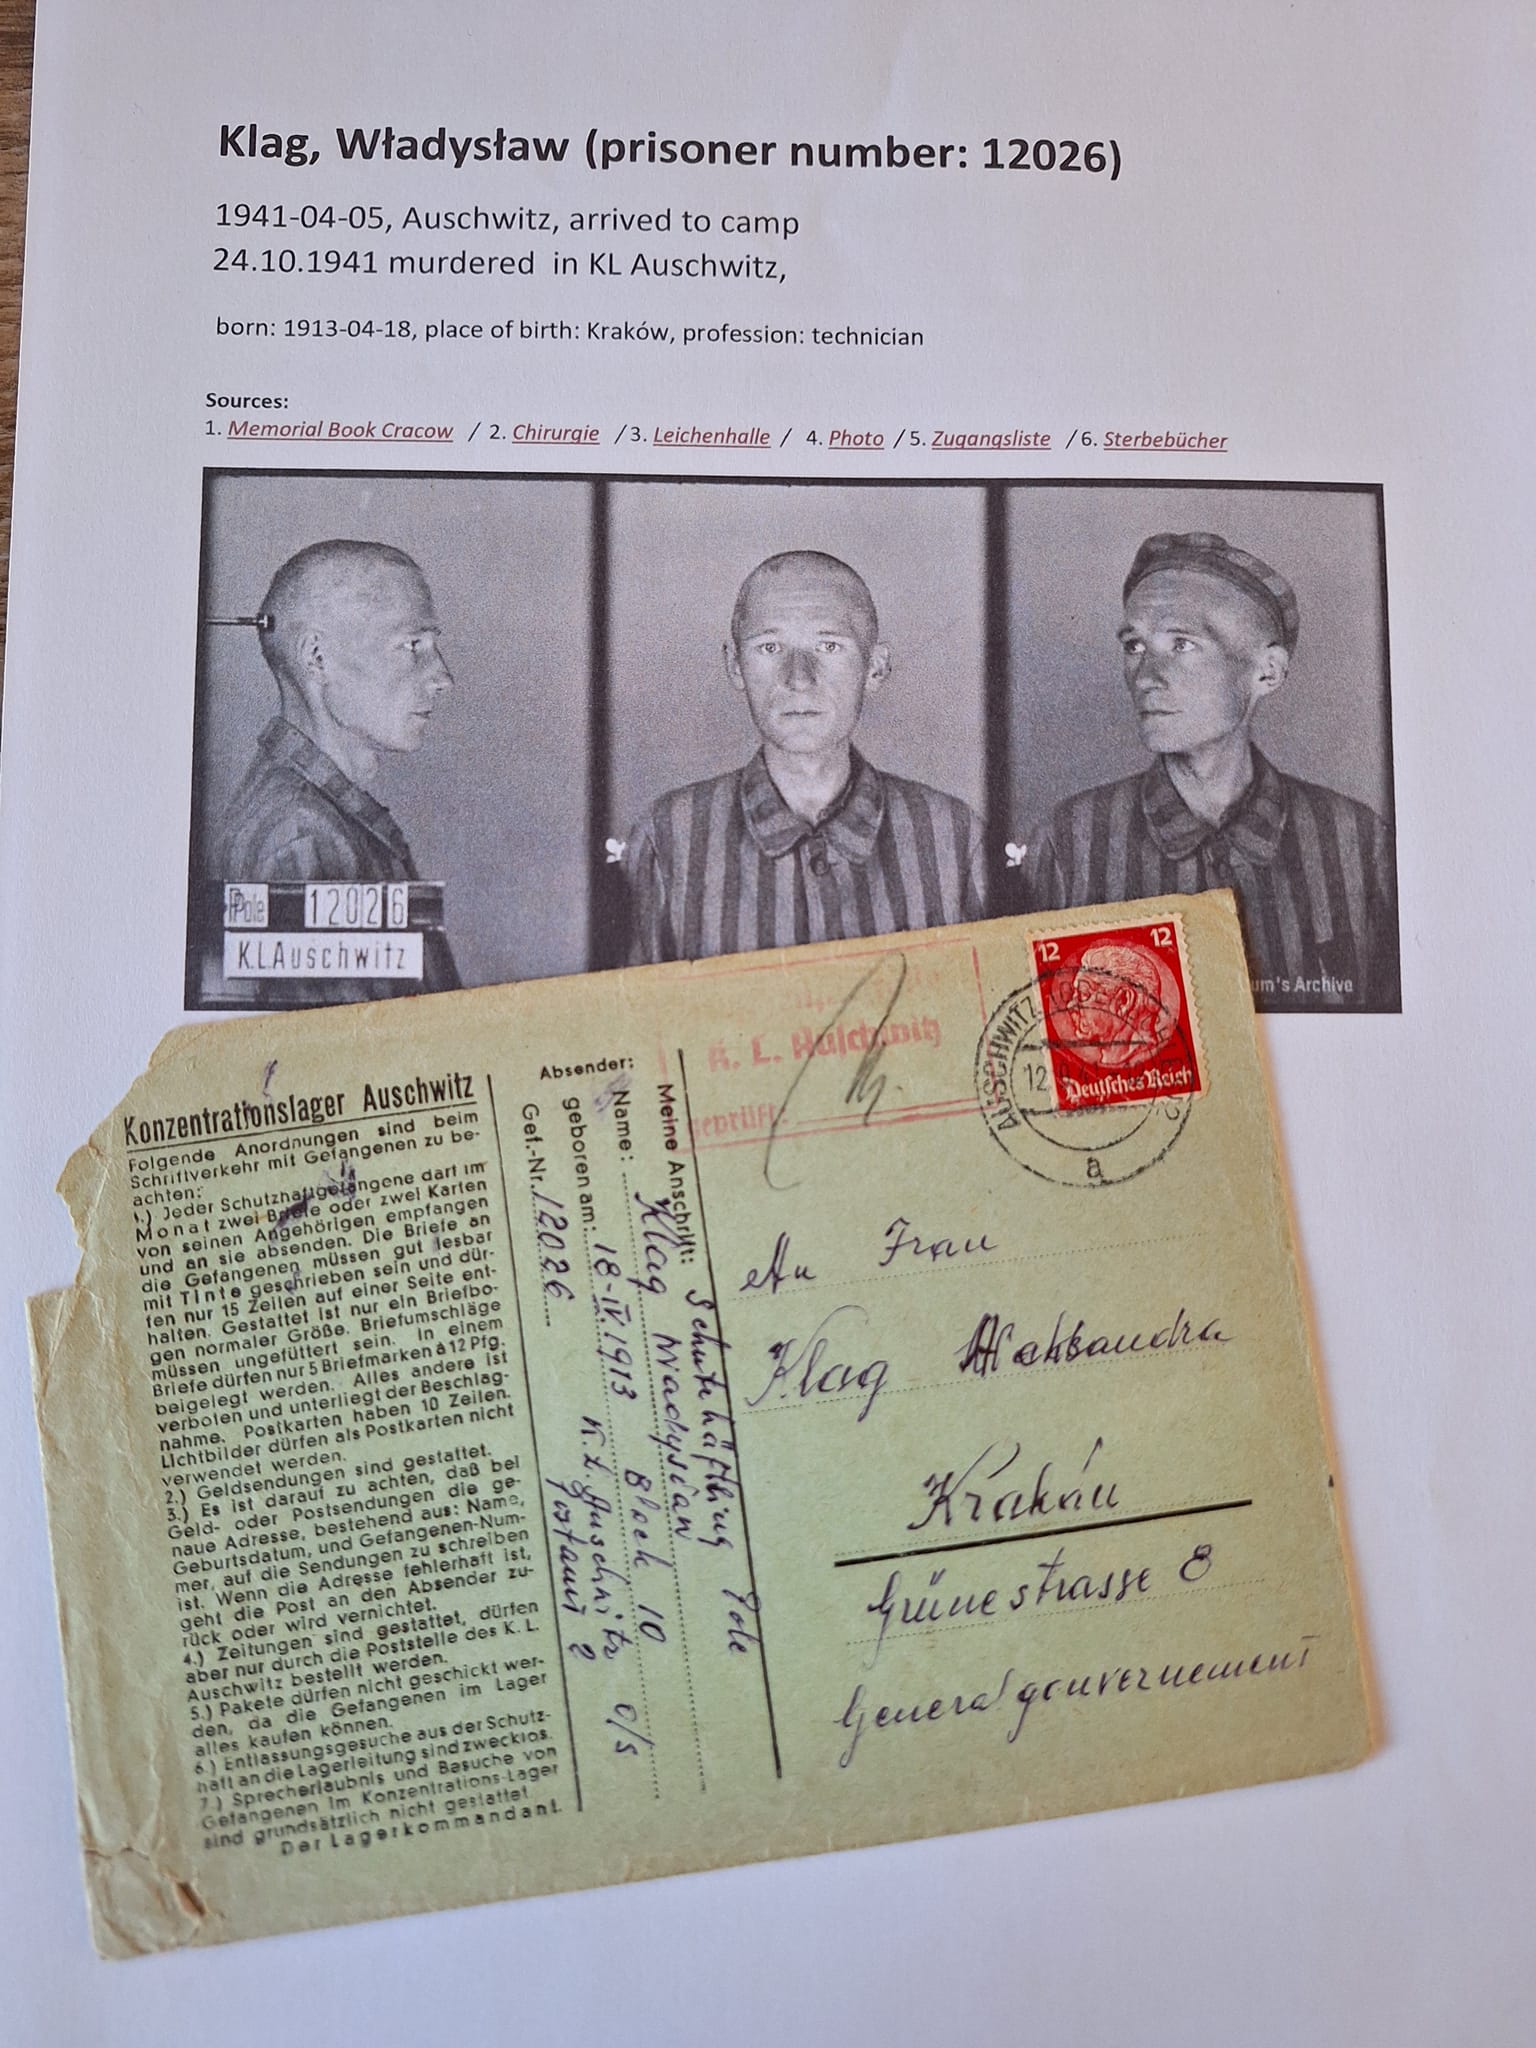 Klag, Władysław (prisoner number: 12026)
1941-04-05, Auschwitz, arrived to camp
24.10.1941 murdered in KL Auschwitz,
born: 1913-04-18, place of birth: Kraków, profession: technician
Sources:
1. Memorial Book Cracow / 2. Chirurgie / 3. Leichenhalle / 4. Photo / 5. Zugangsliste / 6. Sterbebücher
Pole 12026
K.L.Auschwitz
um's Archive
Konzentrationslager Auschwitz
Folgende Anordnungen sind beim
Schriftverkehr mit Gefangenen zu be-
achten:
1.) Jeder Schutzhaftgefangene darf im
Monat zwei Briefe oder zwei Karten
von seinen Angehörigen empfangen
und an sie absenden. Die Briefe an
die Gefangenen müssen gut lesbar
mit Tinte geschrieben sein und dür-
fen nur 15 Zeilen auf einer Seite ent-
halten. Gestattet ist nur ein Briefbo-
gen normaler Größe. Briefumschläge
müssen ungefüttert sein. In einem
Briefe dürfen nur 5 Briefmarken à 12 Pfg.
beigelegt werden. Alles andere ist
verboten und unterliegt der Beschlag-
nahme. Postkarten haben 10 Zeilen.
Lichtbilder dürfen als Postkarten nicht
verwendet werden.
2.) Geldsendungen sind gestattet.
3.) Es ist darauf zu achten, daß bei
Geld- oder Postsendungen die ge-
naue Adresse, bestehend aus: Name,
Geburtsdatum, und Gefangenen-Num-
mer, auf die Sendungen zu schreiben
ist. Wenn die Adresse fehlerhaft ist,
geht die Post an den Absender zu-
rück oder wird vernichtet.
4.) Zeitungen sind gestattet, dürfen
aber nur durch die Poststelle des K. L.
Auschwitz bestellt werden.
5.) Pakete dürfen nicht geschickt wer-
den, da die Gefangenen im Lager
alles kaufen können.
6.) Entlassungsgesuche aus der Schutz-
haft an die Lagerleitung sind zwecklos.
7.) Sprecherlaubnis und Besuche von
Gefangenen im Konzentrations-Lager
sind grundsätzlich nicht gestattet.
Der Lagerkommandant.
Absender:
Meine Anschrift: Schutzhäftling Pole
Name: Klag Wladyslaw
geboren am: 18-IV.1913 Block 10
Gef.-Nr. 12026 K.L. Auschwitz O/S
Postamt 2
K. L. Auschwitz
geprüft:
12 12
Deutsches Reich
AUSCHWITZ
12
a
An Frau
Klag Aleksandra
Krakau
Grünestrasse 8
Generalgouvernement